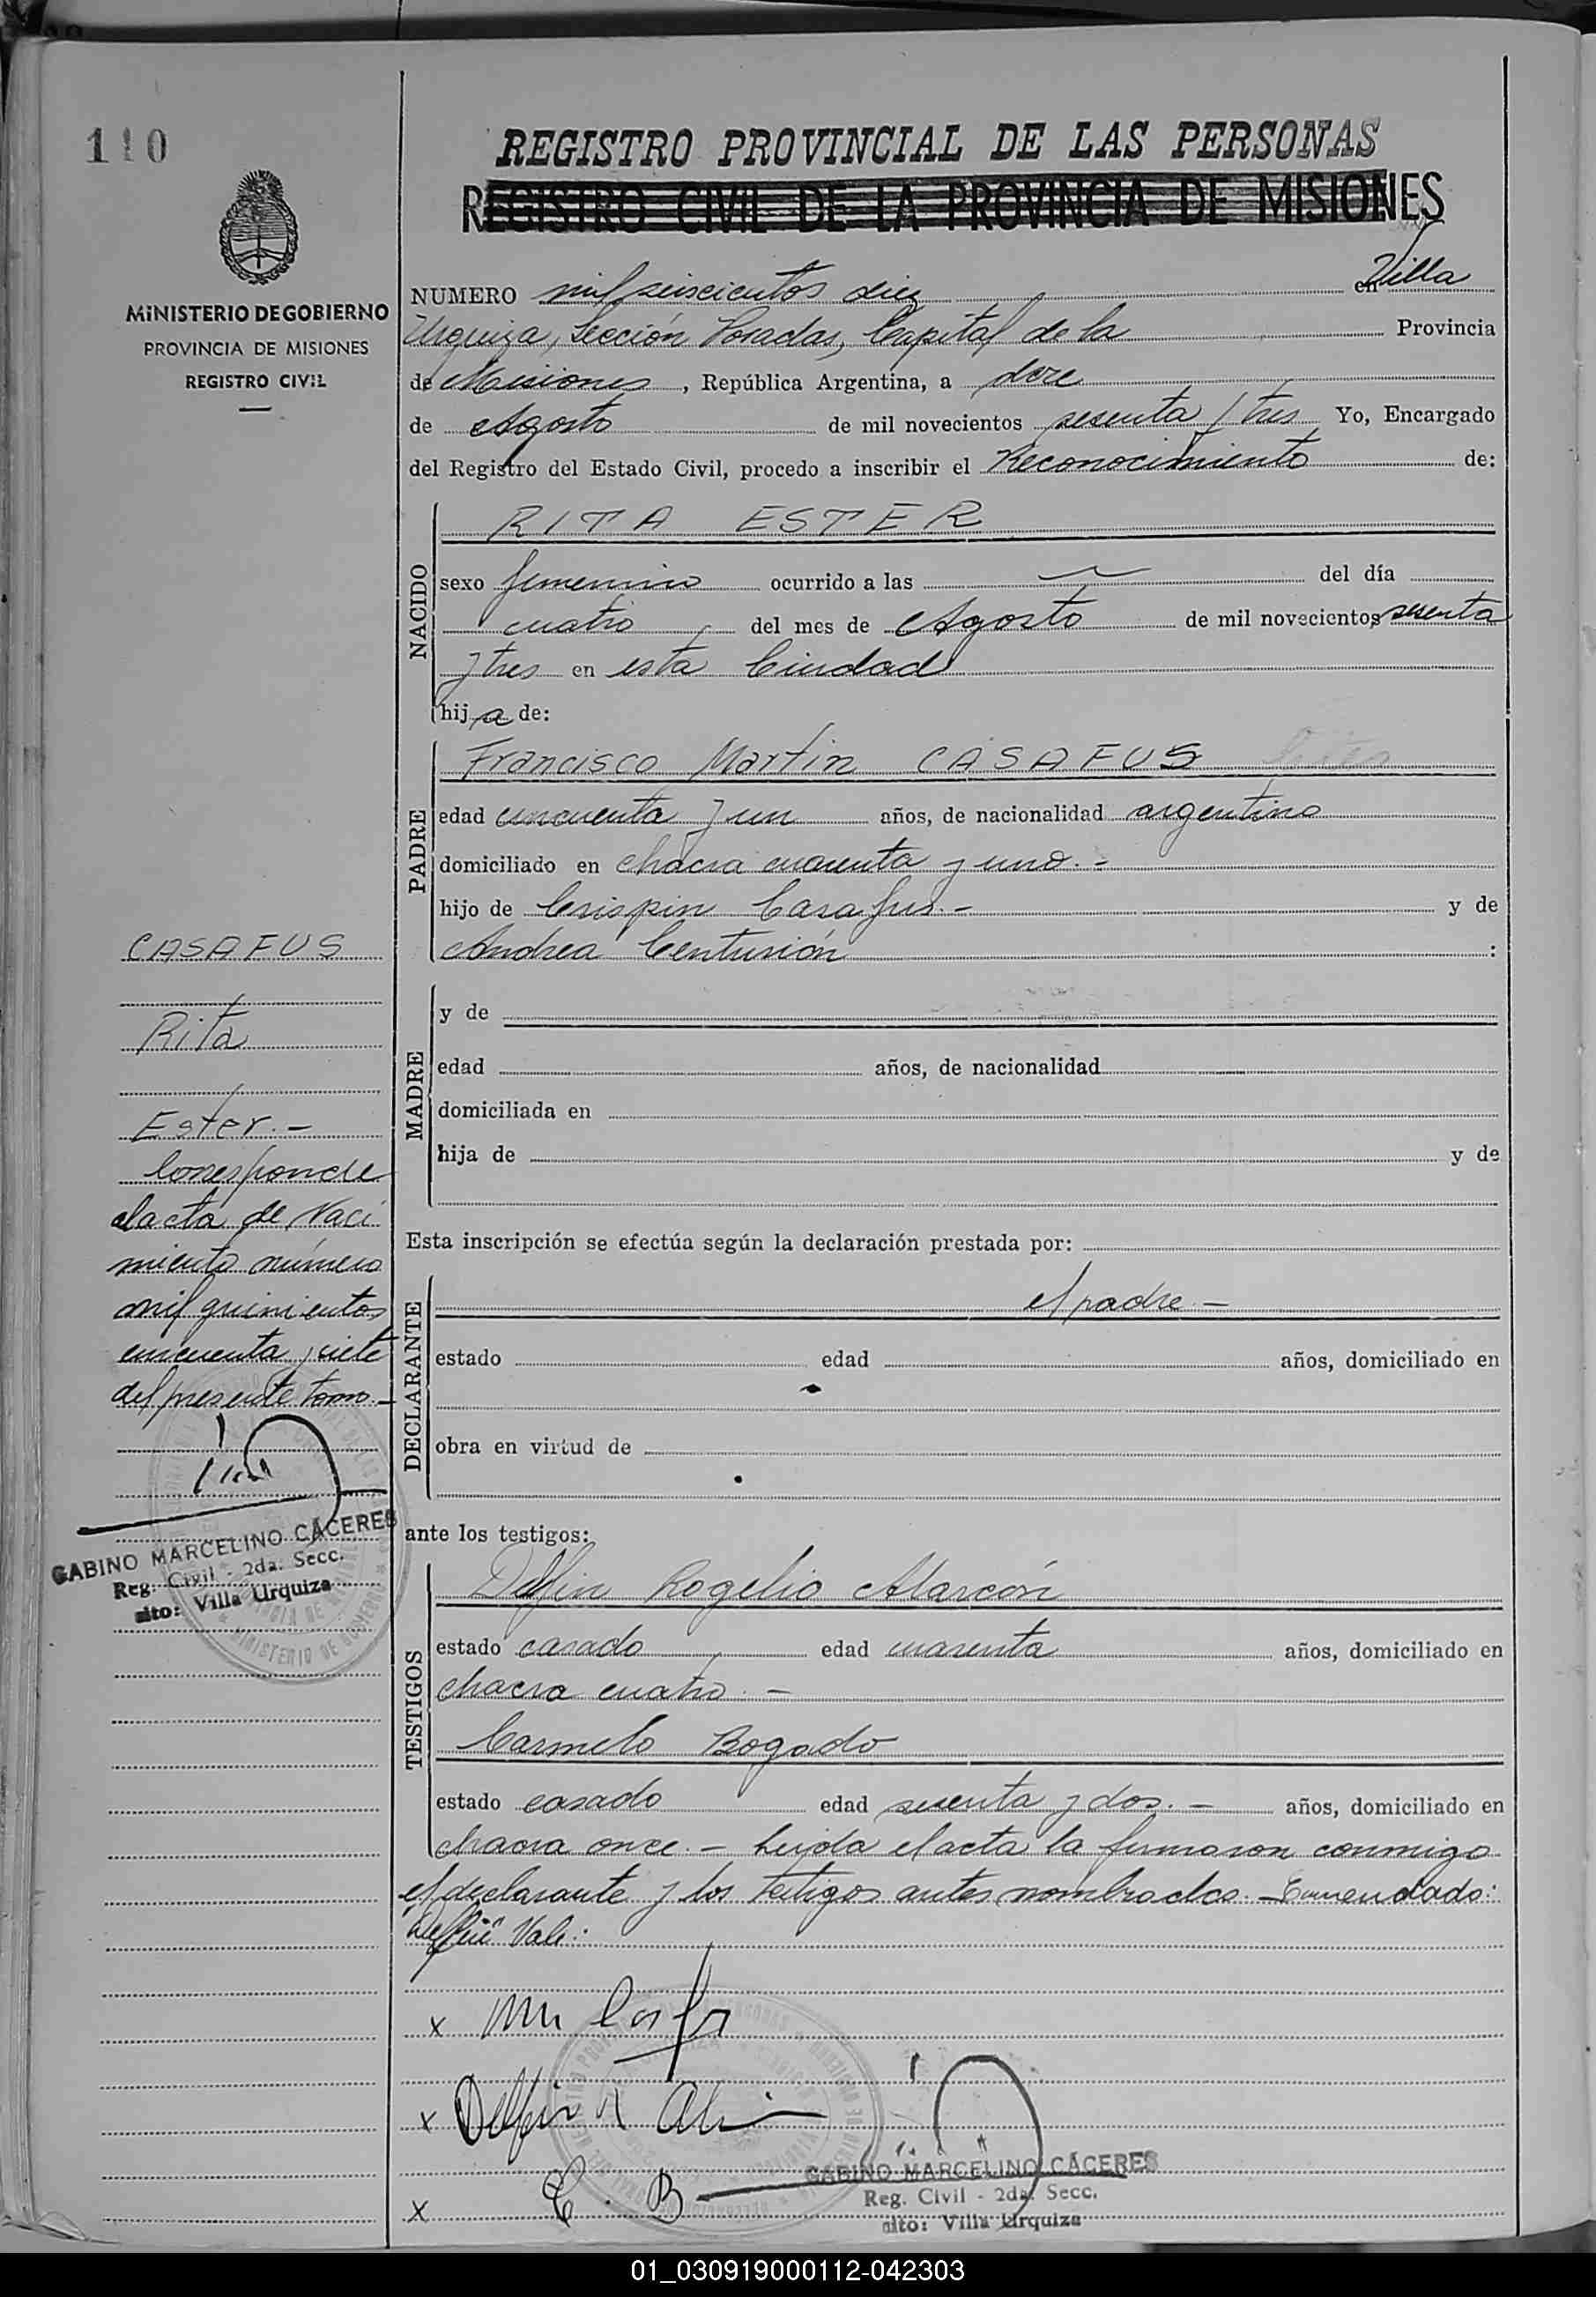 110
REGISTRO PROVINCIAL DE LAS PERSONAS
REGISTRO CIVIL DE LA PROVINCIA DE MISIONES
MINISTERIO DE GOBIERNO
PROVINCIA DE MISIONES
REGISTRO CIVIL
NUMERO mil seiscientos diez en Villa
Urquiza, Sección Posadas, Capital de la Provincia
de Misiones, República Argentina, a doce
de Agosto de mil novecientos sesenta y tres Yo, Encargado
del Registro del Estado Civil, procedo a inscribir el Reconocimiento de:
NACIDO
RITA ESTER
sexo femenino ocurrido a las del día
cuatro del mes de Agosto de mil novecientos sesenta
y tres en esta Ciudad
hija de:
PADRE
Francisco Martin CASAFUS
edad cincuenta y un años, de nacionalidad argentino
domiciliado en chacra cuarenta y uno.-
hijo de Crispin Casafus.- y de
Andrea Centurión :
MADRE
y de
edad años, de nacionalidad
domiciliada en
hija de y de
Esta inscripción se efectúa según la declaración prestada por:
DECLARANTE
el padre.-
estado edad años, domiciliado en
obra en virtud de
ante los testigos:
TESTIGOS
Delfin Rogelio Alarcón
estado casado edad cuarenta años, domiciliado en
chacra cuatro.-
Carmelo Bogado
estado casado edad sesenta y dos.- años, domiciliado en
chacra once.- Leida el acta la firmaron conmigo
el declarante y los testigos antes nombrados.- Enmendado:
"Delfin" Vale:
CASAFUS
Rita
Ester.-
Corresponde
al acta de Naci
miento número
mil quinientos
cincuenta y siete
del presente tomo.-
GABINO MARCELINO CÁCERES
Reg. Civil - 2da. Secc.
Villa Urquiza
x
x Delfin R
x C. B
GABINO MARCELINO CÁCERES
Reg. Civil - 2da. Secc.
Villa Urquiza
01_030919000112-042303